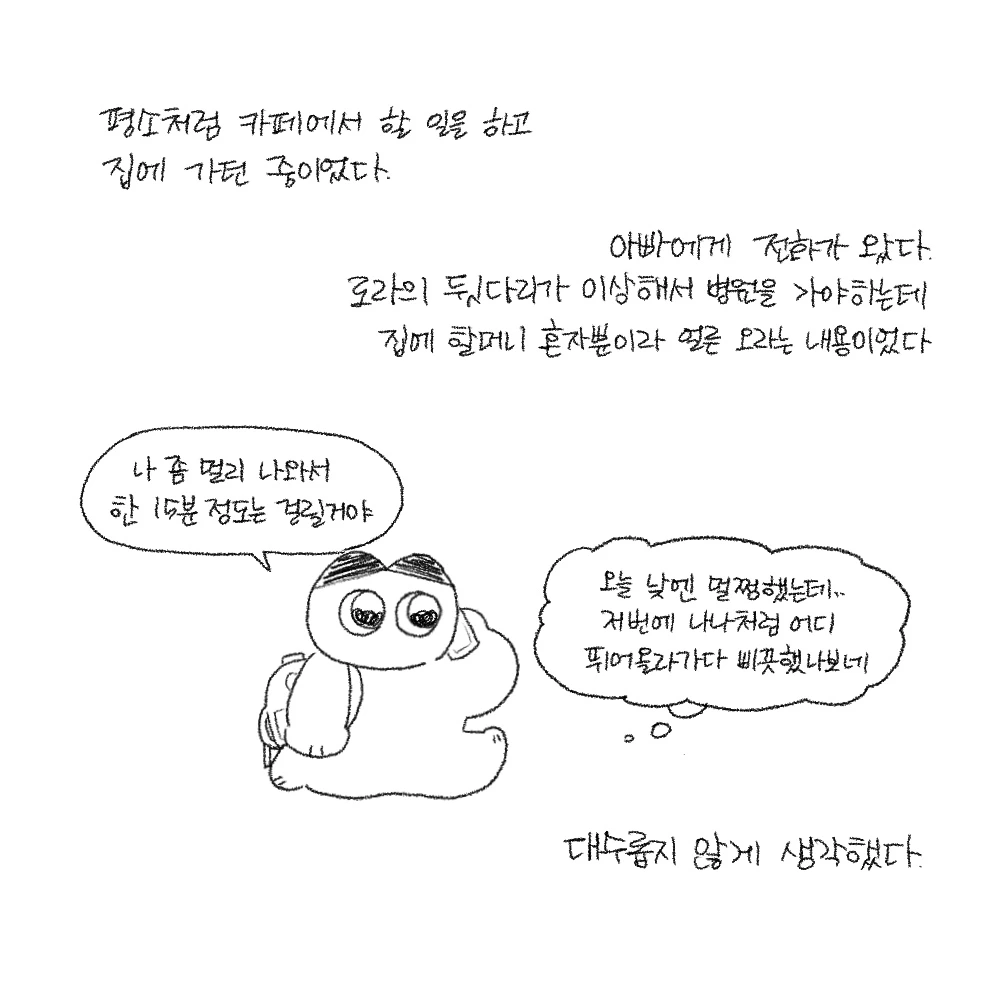 평소처럼 카페에서 할 일을 하고
집에 가던 중이었다.
아빠에게 전화가 왔다.
로라의 뒷다리가 이상해서 병원을 가야하는데
집에 할머니 혼자뿐이라 얼른 오라는 내용이었다
나 좀 멀리 나와서
한 15분 정도는 걸릴거야
오늘 낮엔 멀쩡했는데..
저번에 나나처럼 어디
뛰어올라가다 삐끗했나보네
대수롭지 않게 생각했다.